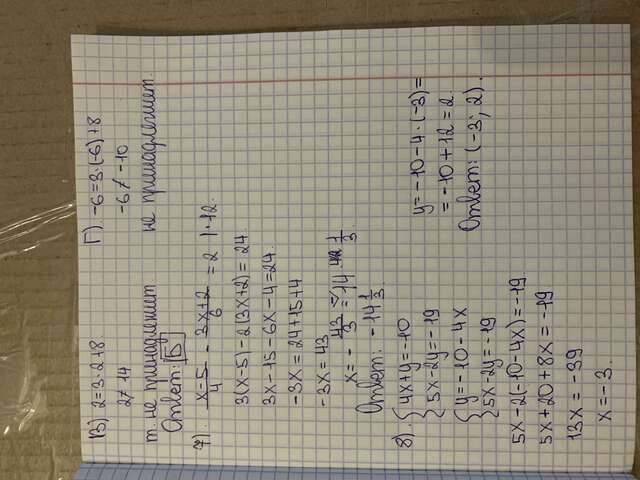 В) 2=3·2+8
2≠14
т. не принадлежит
Ответ: Б
Г). -6=3·(-6)+8
-6≠-10
не принадлежит.
7). x-5/4 - 3x+2/6 = 2 |·12.
3(x-5)-2(3x+2)=24
3x-15-6x-4=24.
-3x=24+15+4
-3x=43
x=-43/3=-14 1/3
Ответ: -14 1/3.
8). {4x+y=-10
{5x-2y=-19
{y=-10-4x
{5x-2y=-19
5x-2(-10-4x)=-19
5x+20+8x=-19
13x=-39
x=-3
y=-10-4·(-3)=
=-10+12=2.
Ответ: (-3; 2).